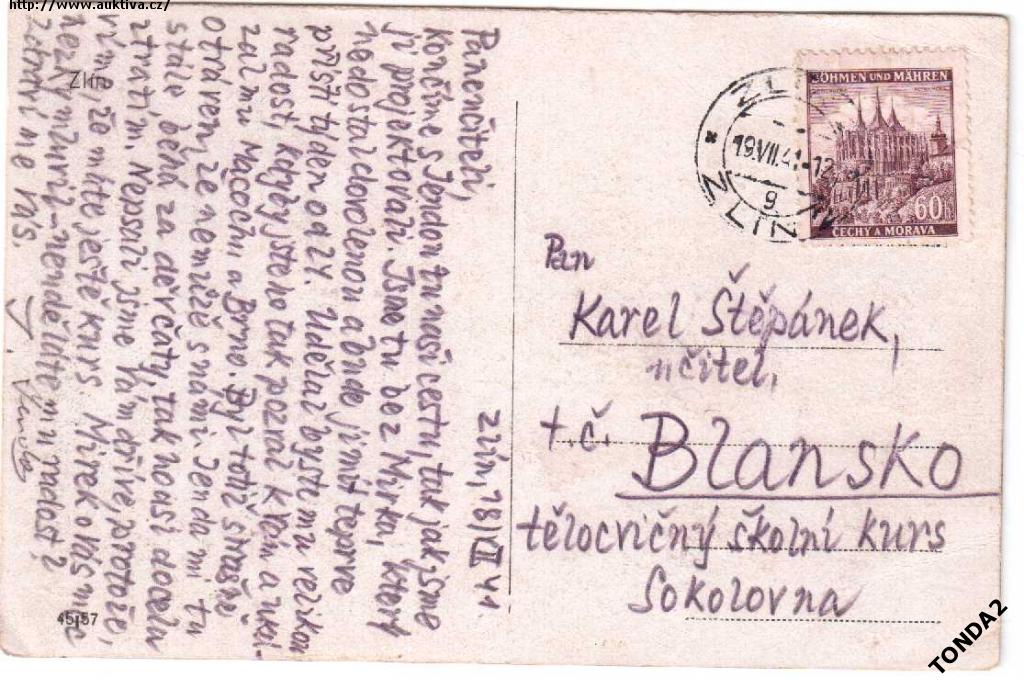 http://www.auktiva.cz/
Zlín, 18/VII 41
Panenčitelí,
končíme s Jendon tu naši cestu, tak jak jsme
ji projektovali. Jsme tu bez Mirka, který
nedostal dovolenou a bude ji mít teprve
příští týden od 21. Udělal byste mu velikou
radost, kdybyste ho tak pozval k Vám a ukázal
mu Macochu a Brno. Byl totiž strašně
otráven, že nemůže s námi. Jenda mi tu
stále běhá za děvčaty, tak ho asi docela
ztratím. Nepsali jsme Vám dříve, protože
víme, že máte ještě kurs. Mirek o Vás nic
neví. Neuděláte mu radost?
Zdraví me Vás.
Zlín
45157
BÖHMEN UND MÄHREN
60h
ČECHY A MORAVA
ZLÍN
19.VII.41-12
9
ZLIN
Pan
Karel Štěpánek,
učitel,
t.č. Blansko
tělocvičný školní kurs
Sokolovna
TONDA2